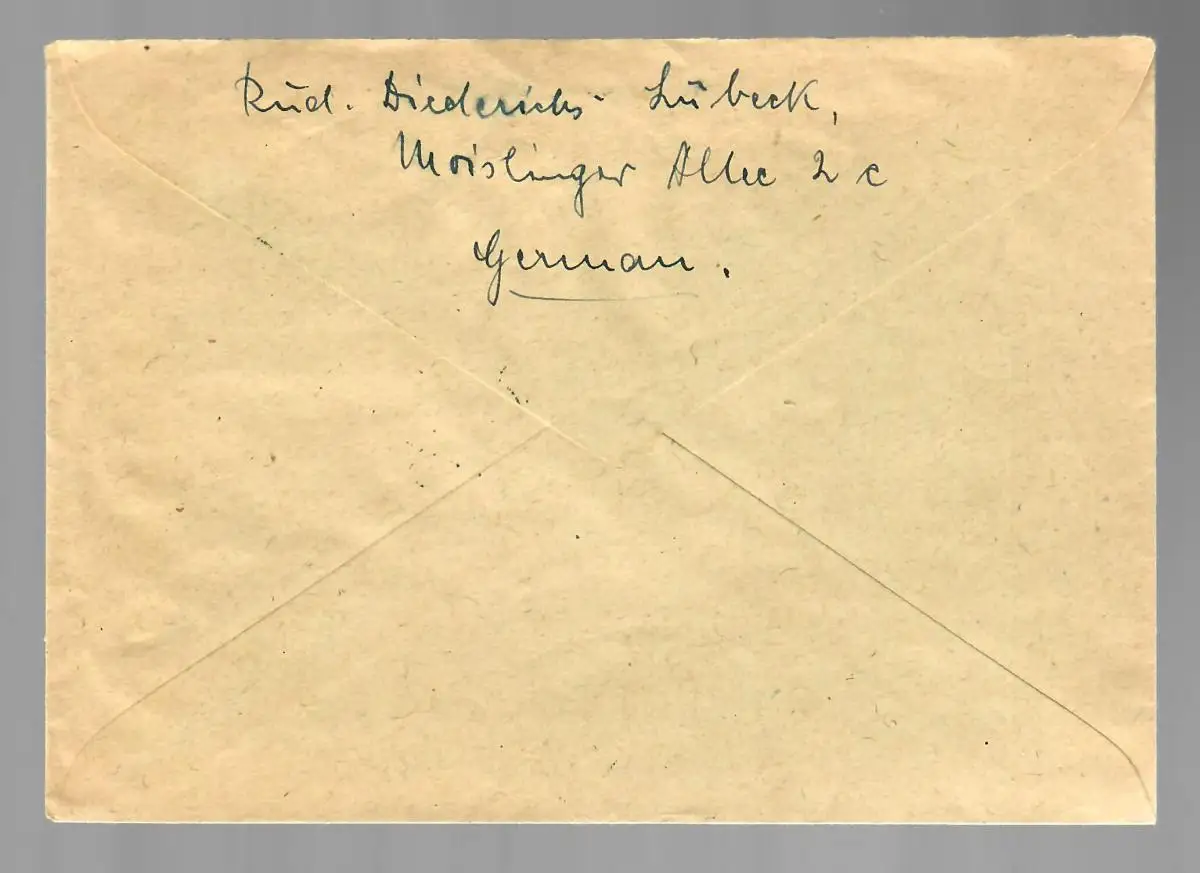 Rud. Diederichs - Lübeck,
Moislinger Allee 2 c
German.